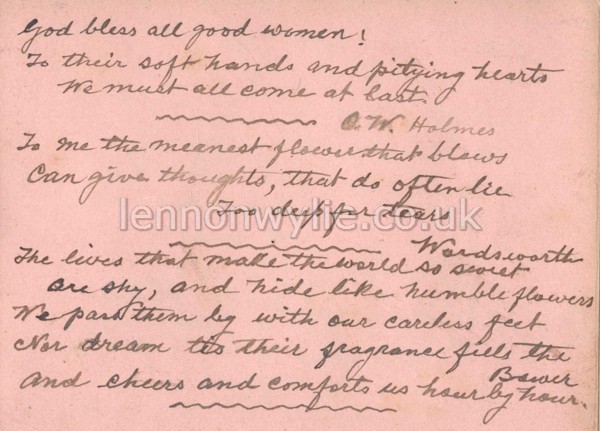 God bless all good women!
To their soft hands and pitying hearts
We must all come at last.
O.W. Holmes
To me the meanest flower that blows
Can give thoughts, that do often lie
Too deep for tears
lennonwylie.co.uk
Wordsworth
The lives that make the world so sweet
are shy, and hide like humble flowers
We pass them by with our careless feet
Nor dream tis their fragrance fills the
Bower
And cheers and comforts us hour by hour.